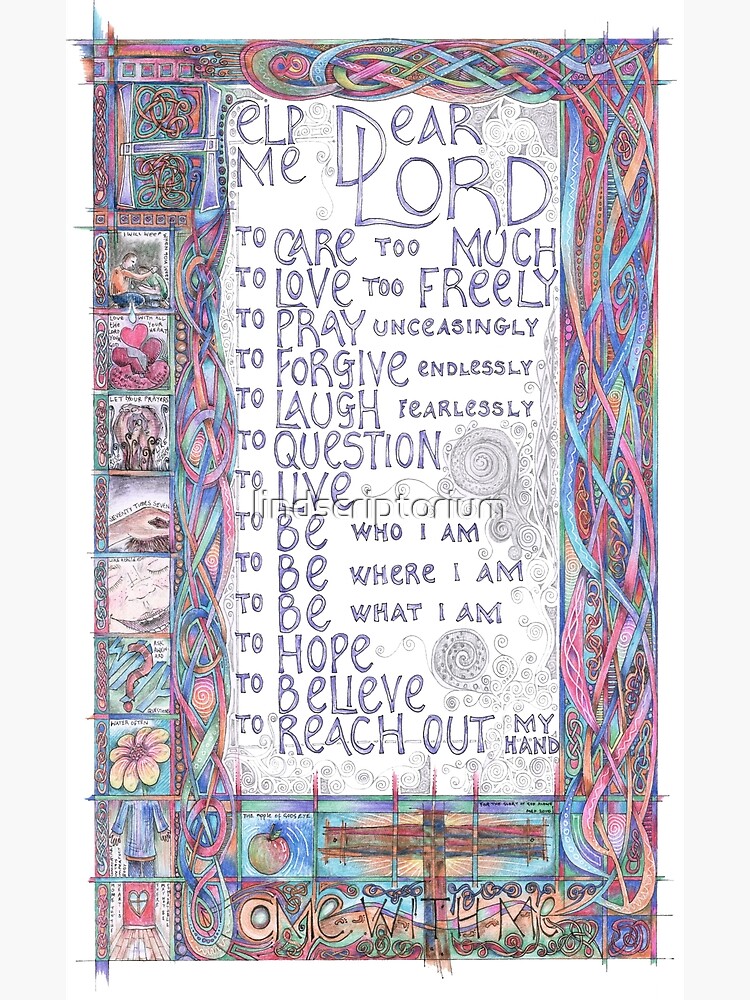 HELP DEAR
ME LORD
TO CARE TOO MUCH
TO LOVE TOO FREELY
TO PRAY UNCEASINGLY
TO FORGIVE ENDLESSLY
TO LAUGH FEARLESSLY
TO QUESTION
TO LIVE
lindscriptorium
TO BE WHO I AM
TO BE WHERE I AM
TO BE WHAT I AM
TO HOPE
TO BELIEVE
TO REACH OUT MY
HAND
I WILL WEEP
LOVE WITH ALL
THE YOUR
LORD HEART
YOUR
LET YOUR PRAYERS
SEVENTY TIMES SEVEN
ASK
QUESTIONS
WATER OFTEN
THE APPLE OF GODS EYE
FOR THE GLORY OF GOD ALONE
HEART IS
COME WITH ME